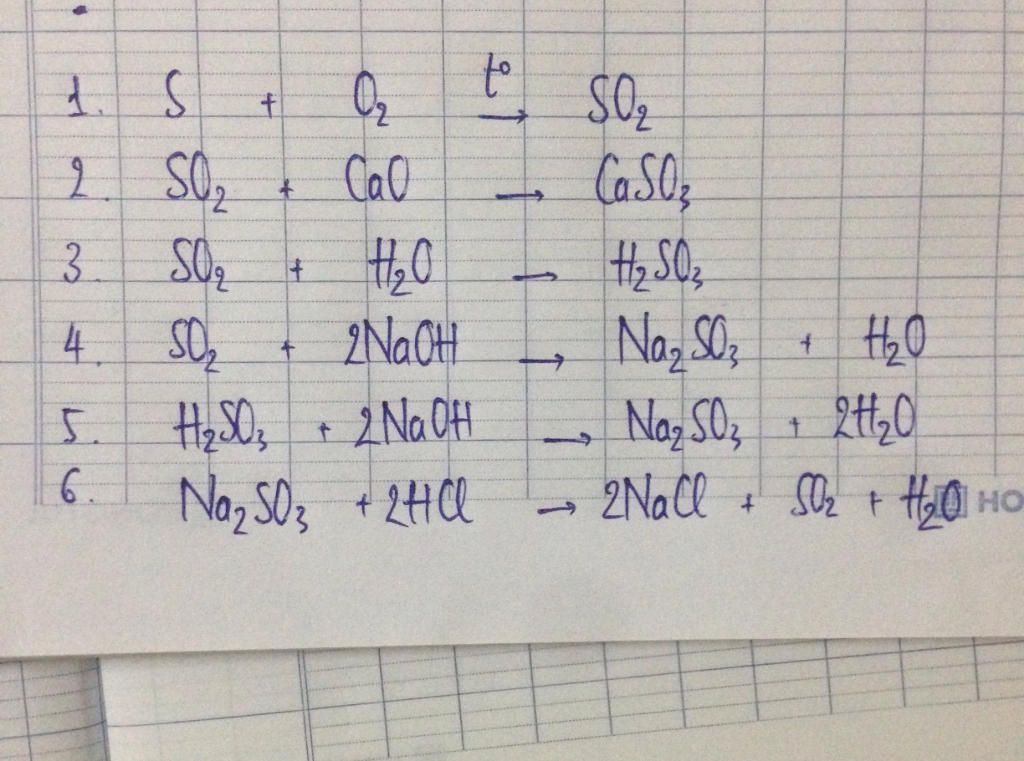 1. S + O₂ t° → SO₂
2. SO₂ + CaO → CaSO₃
3. SO₂ + H₂O → H₂SO₃
4. SO₂ + 2NaOH → Na₂SO₃ + H₂O
5. H₂SO₃ + 2NaOH → Na₂SO₃ + 2H₂O
6. Na₂SO₃ + 2HCl → 2NaCl + SO₂ + H₂O